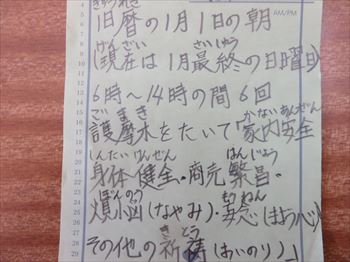 きゅうれき AM/PM
旧暦の1月1日の朝
げんざい さいしゅう
(現在は1月最終の日曜日)
6時〜14時の間 6回
ごまき かないあんぜん
護摩木をたいて「家内安全
しんたいけんぜん はんじょう
身体健全・商売繁昌・
ぼんのう もうねん
煩悩(なやみ)・妄念(まよう心)
きとう
その他の祈祷(おいのり)」